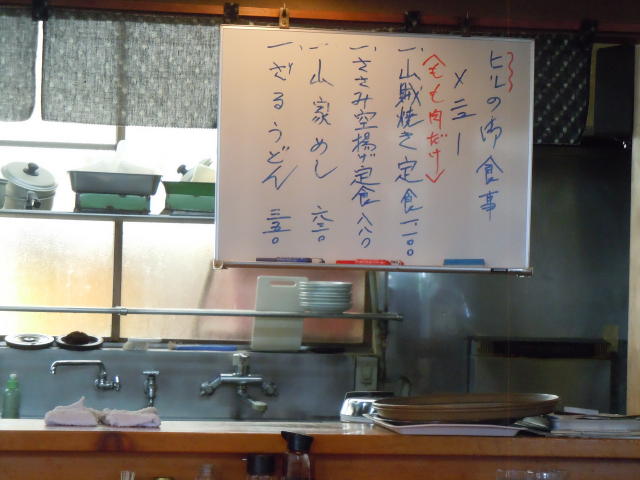 ヒルの御食事
メニュー
〈もも肉だけ〉
一、山賊焼き定食 一一〇〇
一、ささみ空揚げ定食 八八〇
一、山家めし 六三〇
一、ざるうどん 三五〇